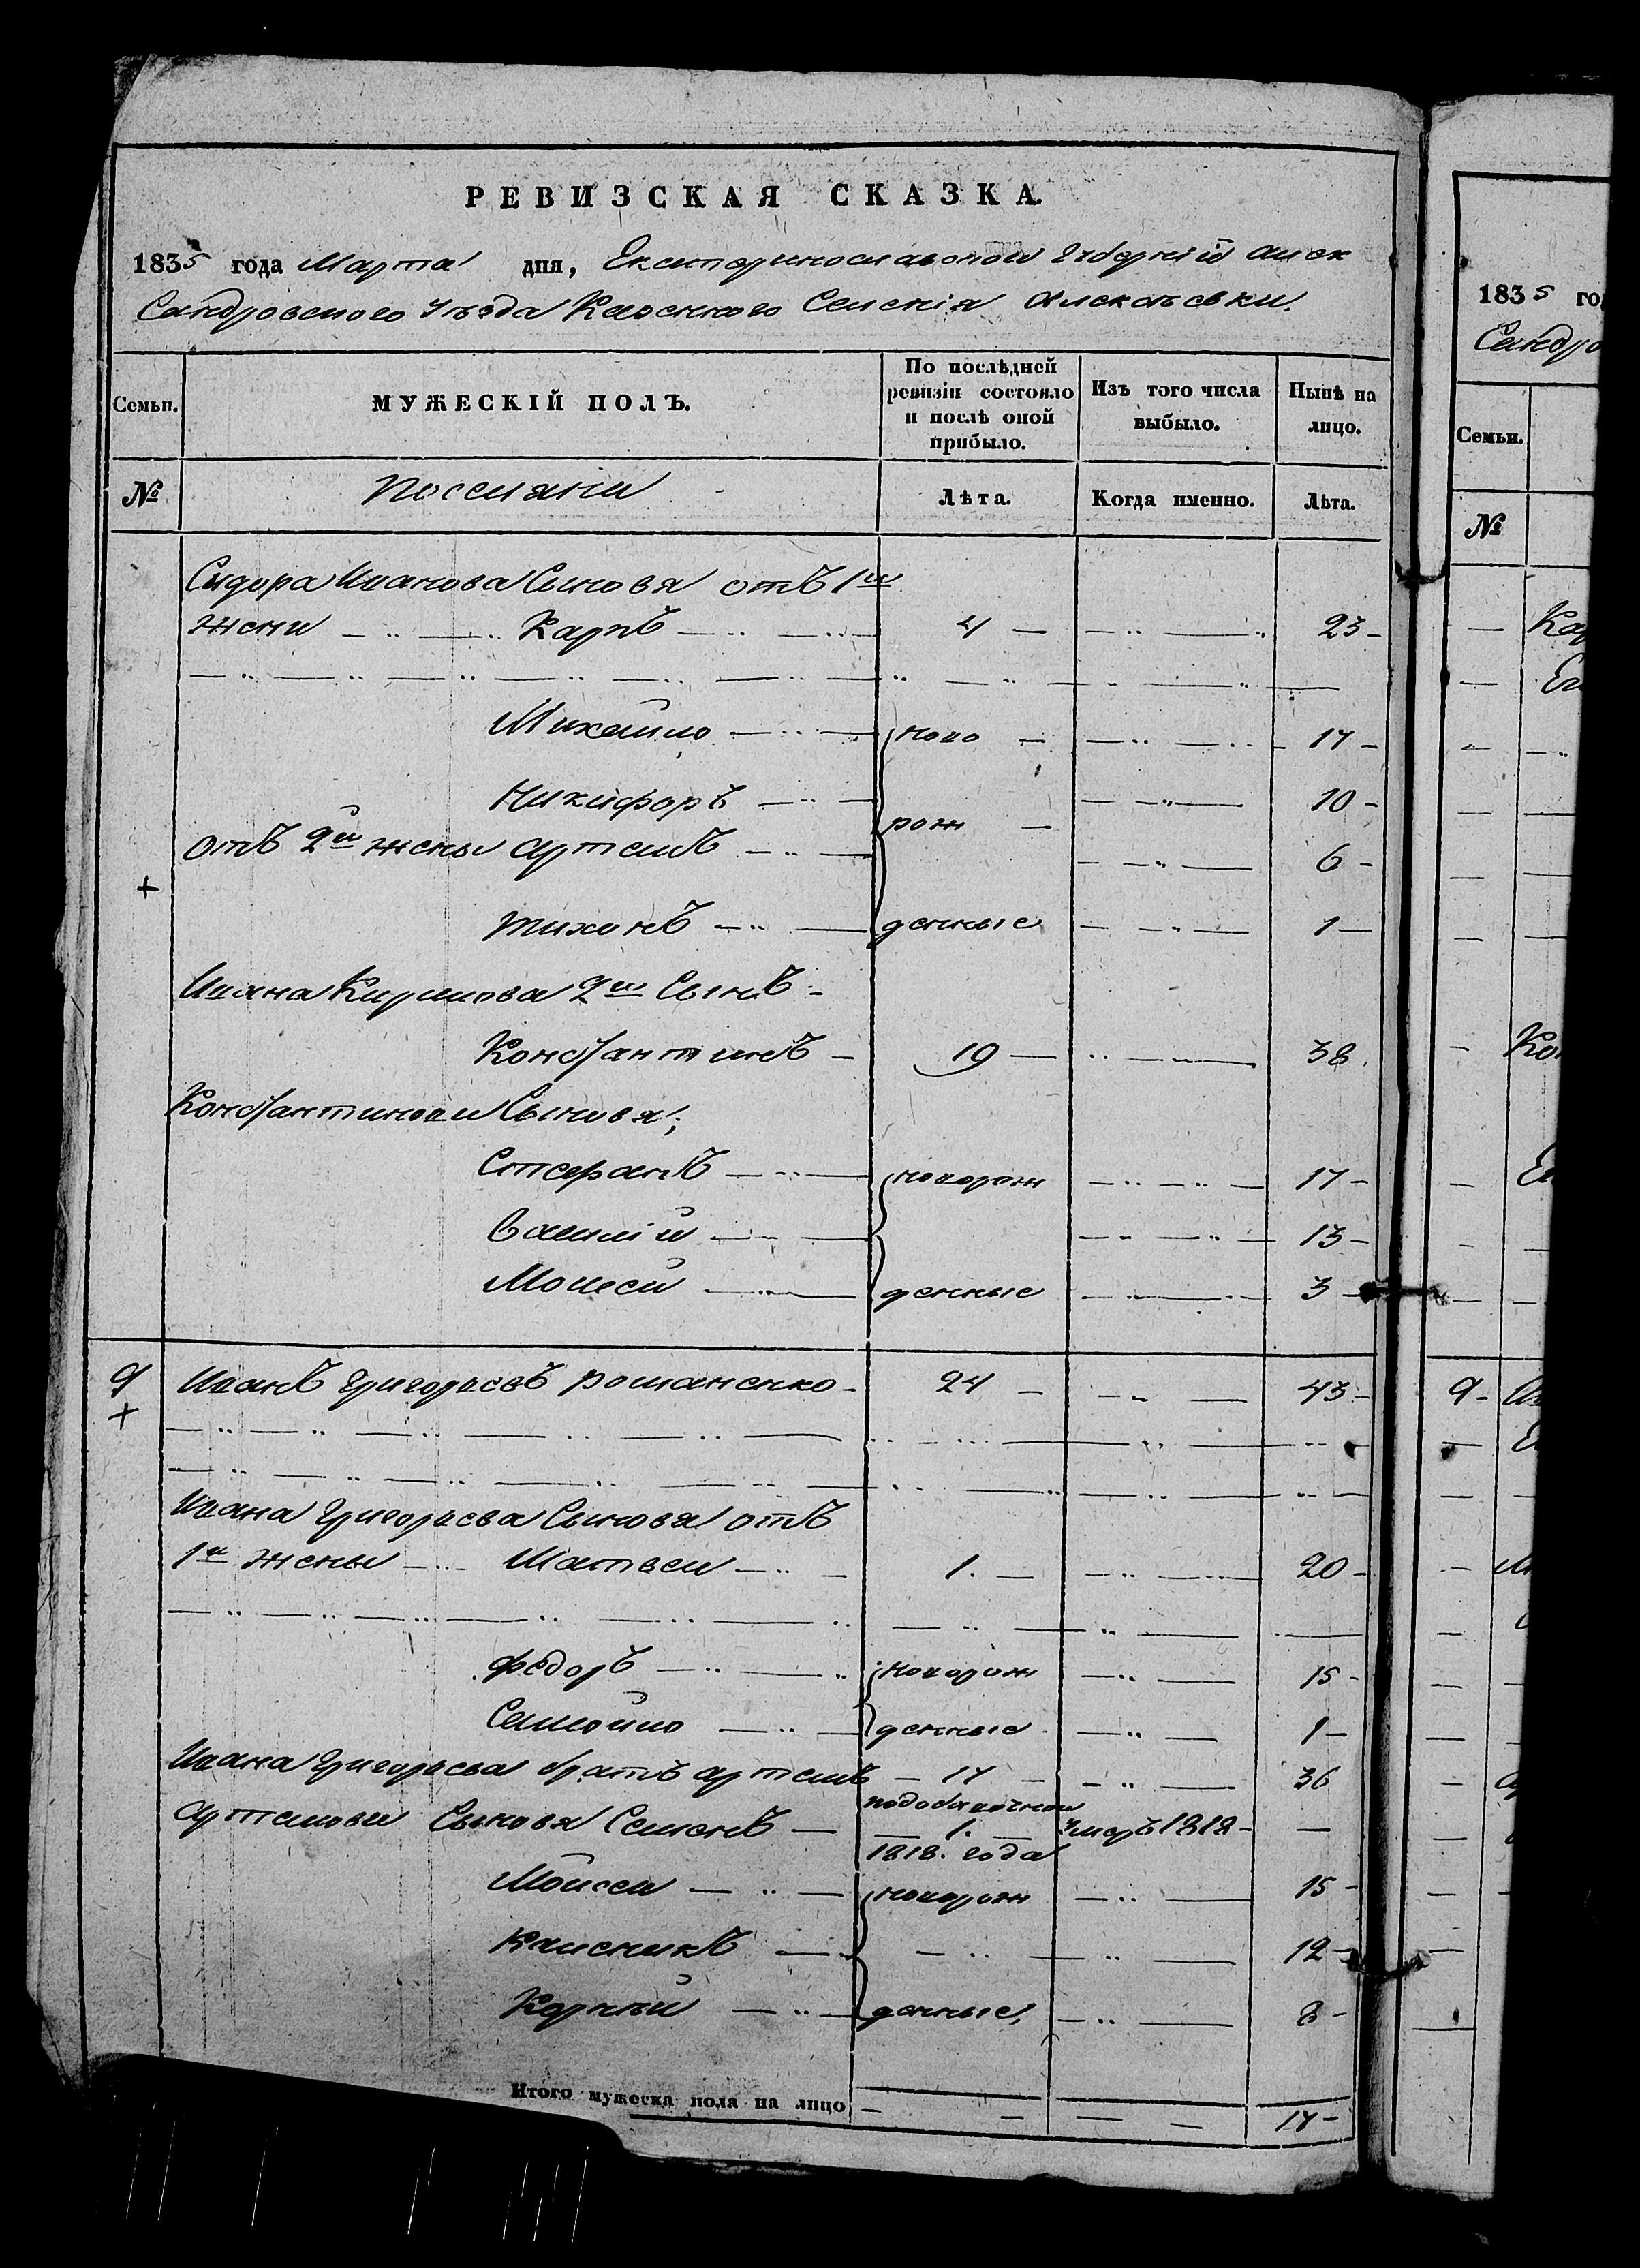 РЕВИЗСКАЯ СКАЗКА.
1835 года Марта дня, Екатеринославской Губерній Алек
Сандровского Уезда Казенного Селенія Алексеевки.
Семьи. МУЖЕСКІЙ ПОЛЪ. По послѣдней ревизіи состояло и послѣ оной прибыло. Изъ того числа выбыло. Нынѣ на лицо.
№ Поселяни Лѣта. Когда именно. Лѣта.
Сидора Иванова Сыновя отъ 1й
жени Карпъ 4 23
Михайло ново 17
Никифоръ 10
рож
отъ 2й жены Артемъ 6
Тихонъ денные 1
Ивана Кирилова 2й Сынъ
Константинъ 19 38
Константинови Сыновя;
Стефанъ новорож 17
Василій 13
Моисей денные 3
9 Иванъ Григорьевъ Романенко 24 43
Ивана Григорьева Сыновя отъ
1й жены Матвей 1. 20
Федоръ новорож 15
Самойло денные 1
Ивана Григорьева братъ Артемъ 17 36
Артемови Сыновя Семенъ 1. умеръ 1818
1818. года
Моисей новорож 15
Климентъ 12
Корний денные 8
Итого мужеска пола на лицо 17
1835 го
Сандро
Семьи.
№
Ка
9